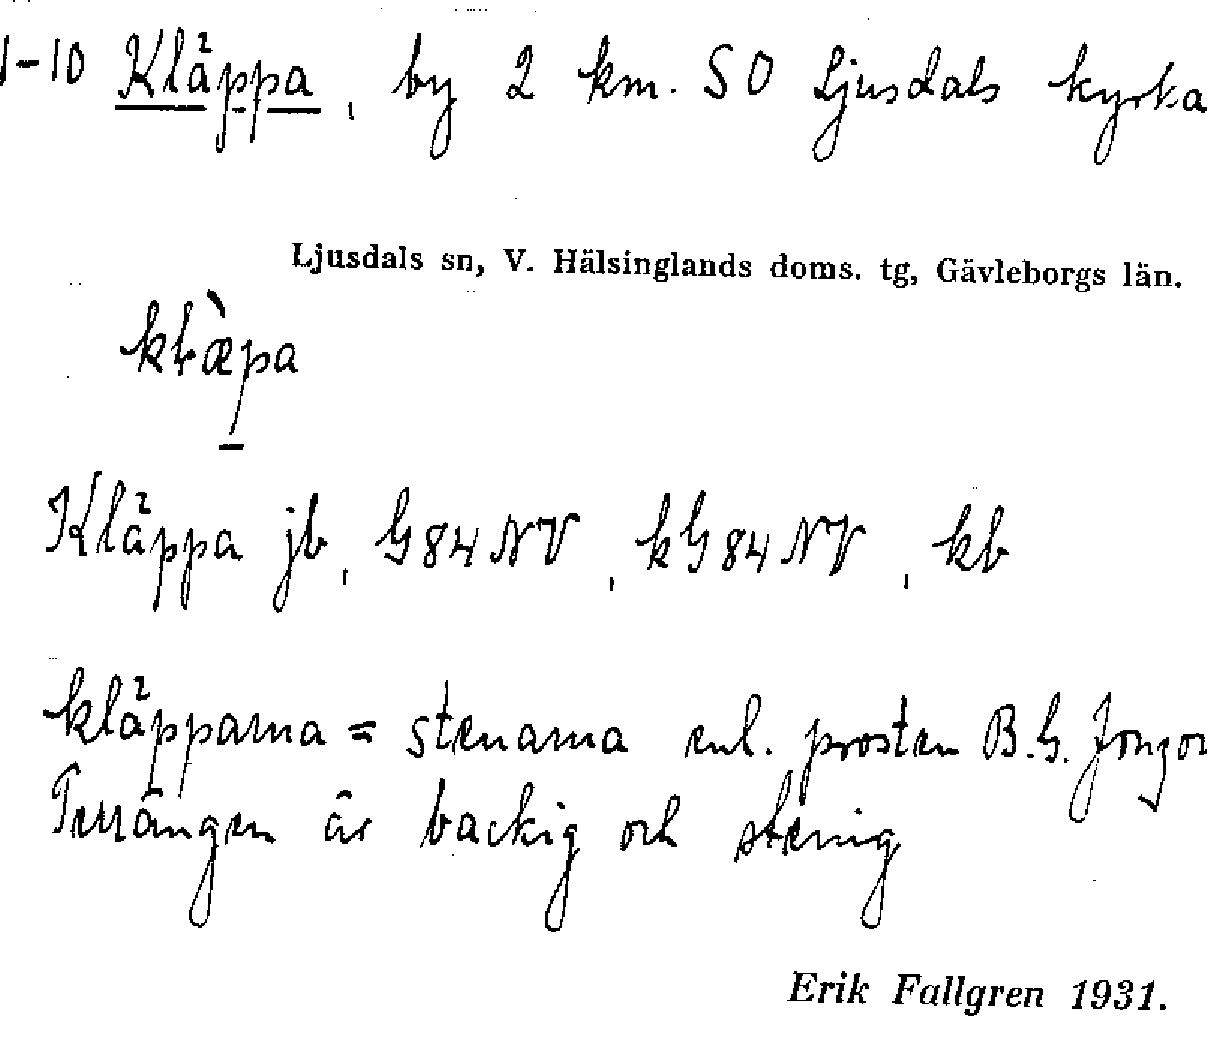 1-10 Kläppa, by 2 km. SO Ljusdals kyrka
Ljusdals sn, V. Hälsinglands doms. tg, Gävleborgs län.
Kläppa jb, G84NV, kG84NV, kb
kläpparna = stenarna enl. prosten B.G.
Terrängen är backig och stenig
Erik Fallgren 1931.